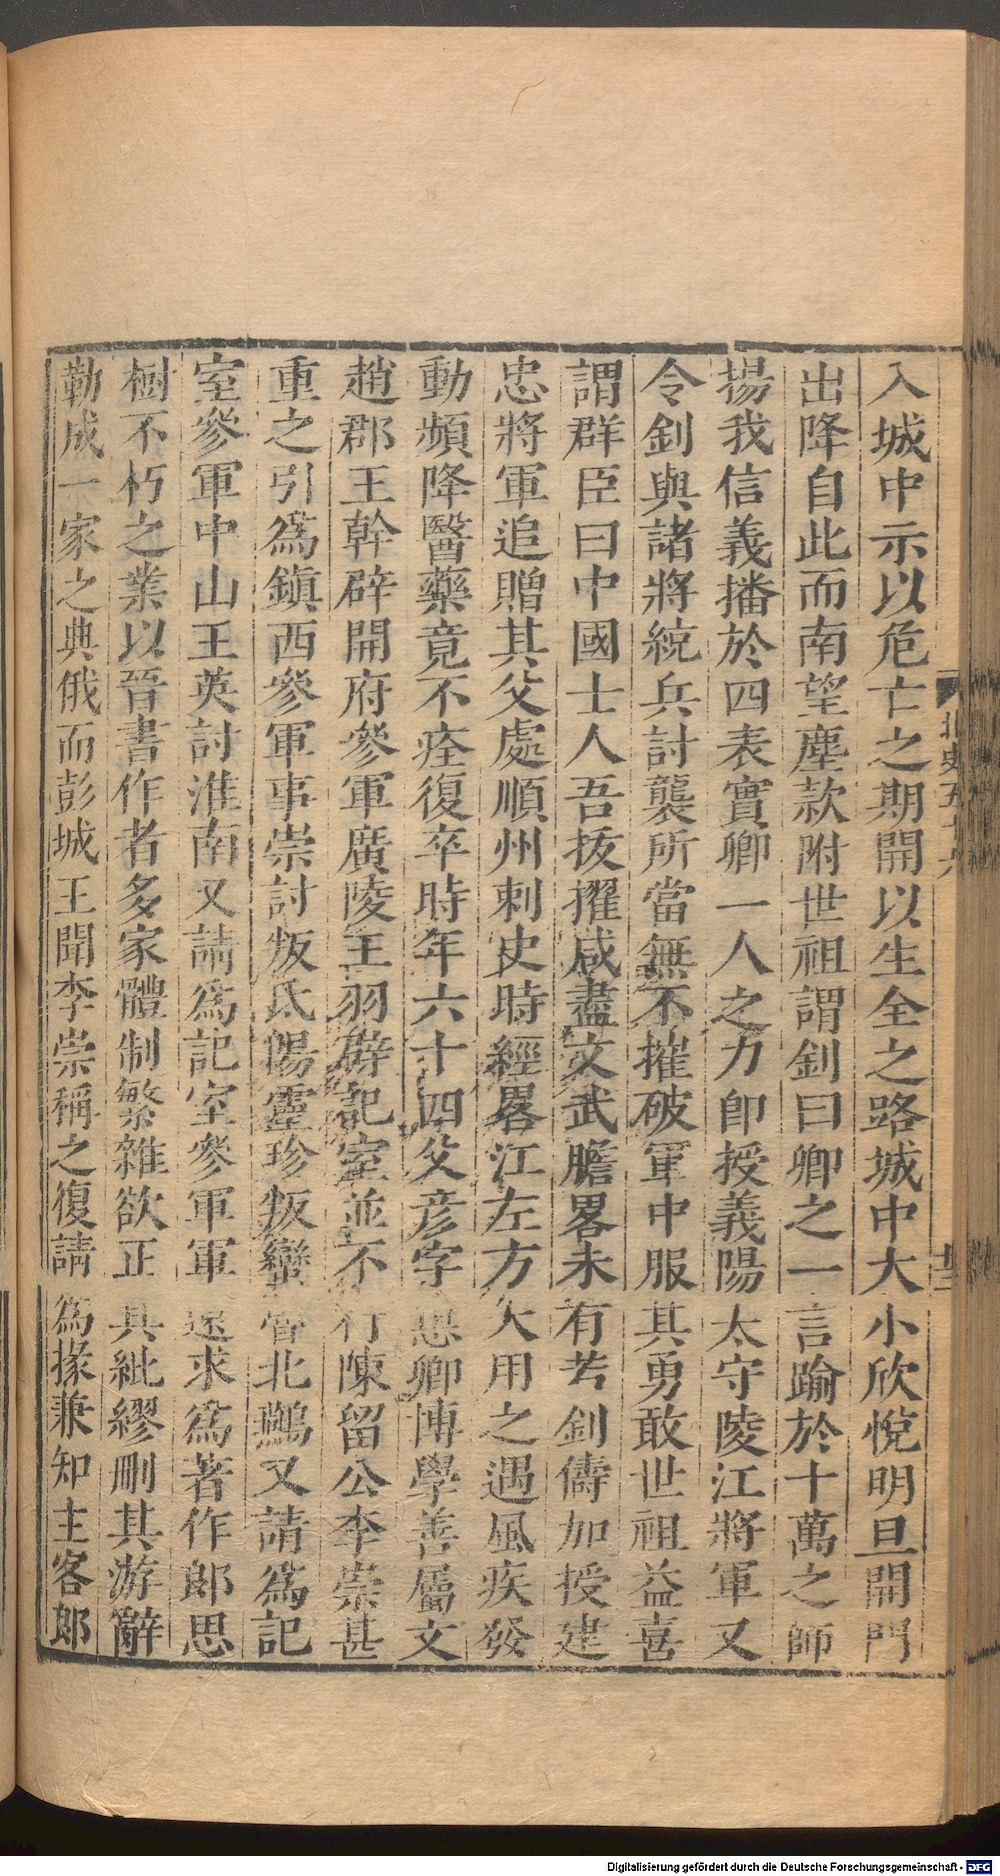 入城中示以危亡之期開以生全之路城中大小欣悅明旦開門
出降自此而南望塵款附世祖謂釗曰卿之一言踰於十萬之師
揚我信義播於四表實卿一人之力卽授義陽太守陵江將軍又
令釗與諸將統兵討襲所當無不摧破軍中服其勇敢世祖益喜
謂群臣曰中國士人吾拔擢咸盡文武膽畧未有若釗儔加授建
忠將軍追贈其父處順州刺史時經畧江左方大用之遇風疾發
動頻降醫藥竟不痊復卒時年六十四父彦字思卿博學善屬文
趙郡王幹辟開府參軍廣陵王羽辟記室並不行陳留公李崇甚
重之引爲鎮西參軍事崇討叛氐陽靈珍叛蠻魯北鷰又請爲記
室參軍中山王英討淮南又請爲記室參軍軍還求爲著作郎思
樹不朽之業以晉書作者多家體制繁雜欲正其紕繆刪其游辭
勒成一家之典俄而彭城王聞李崇稱之復請爲掾兼知主客郎
北史五十六
廿二
Digitalisierung gefördert durch die Deutsche Forschungsgemeinschaft - DFG